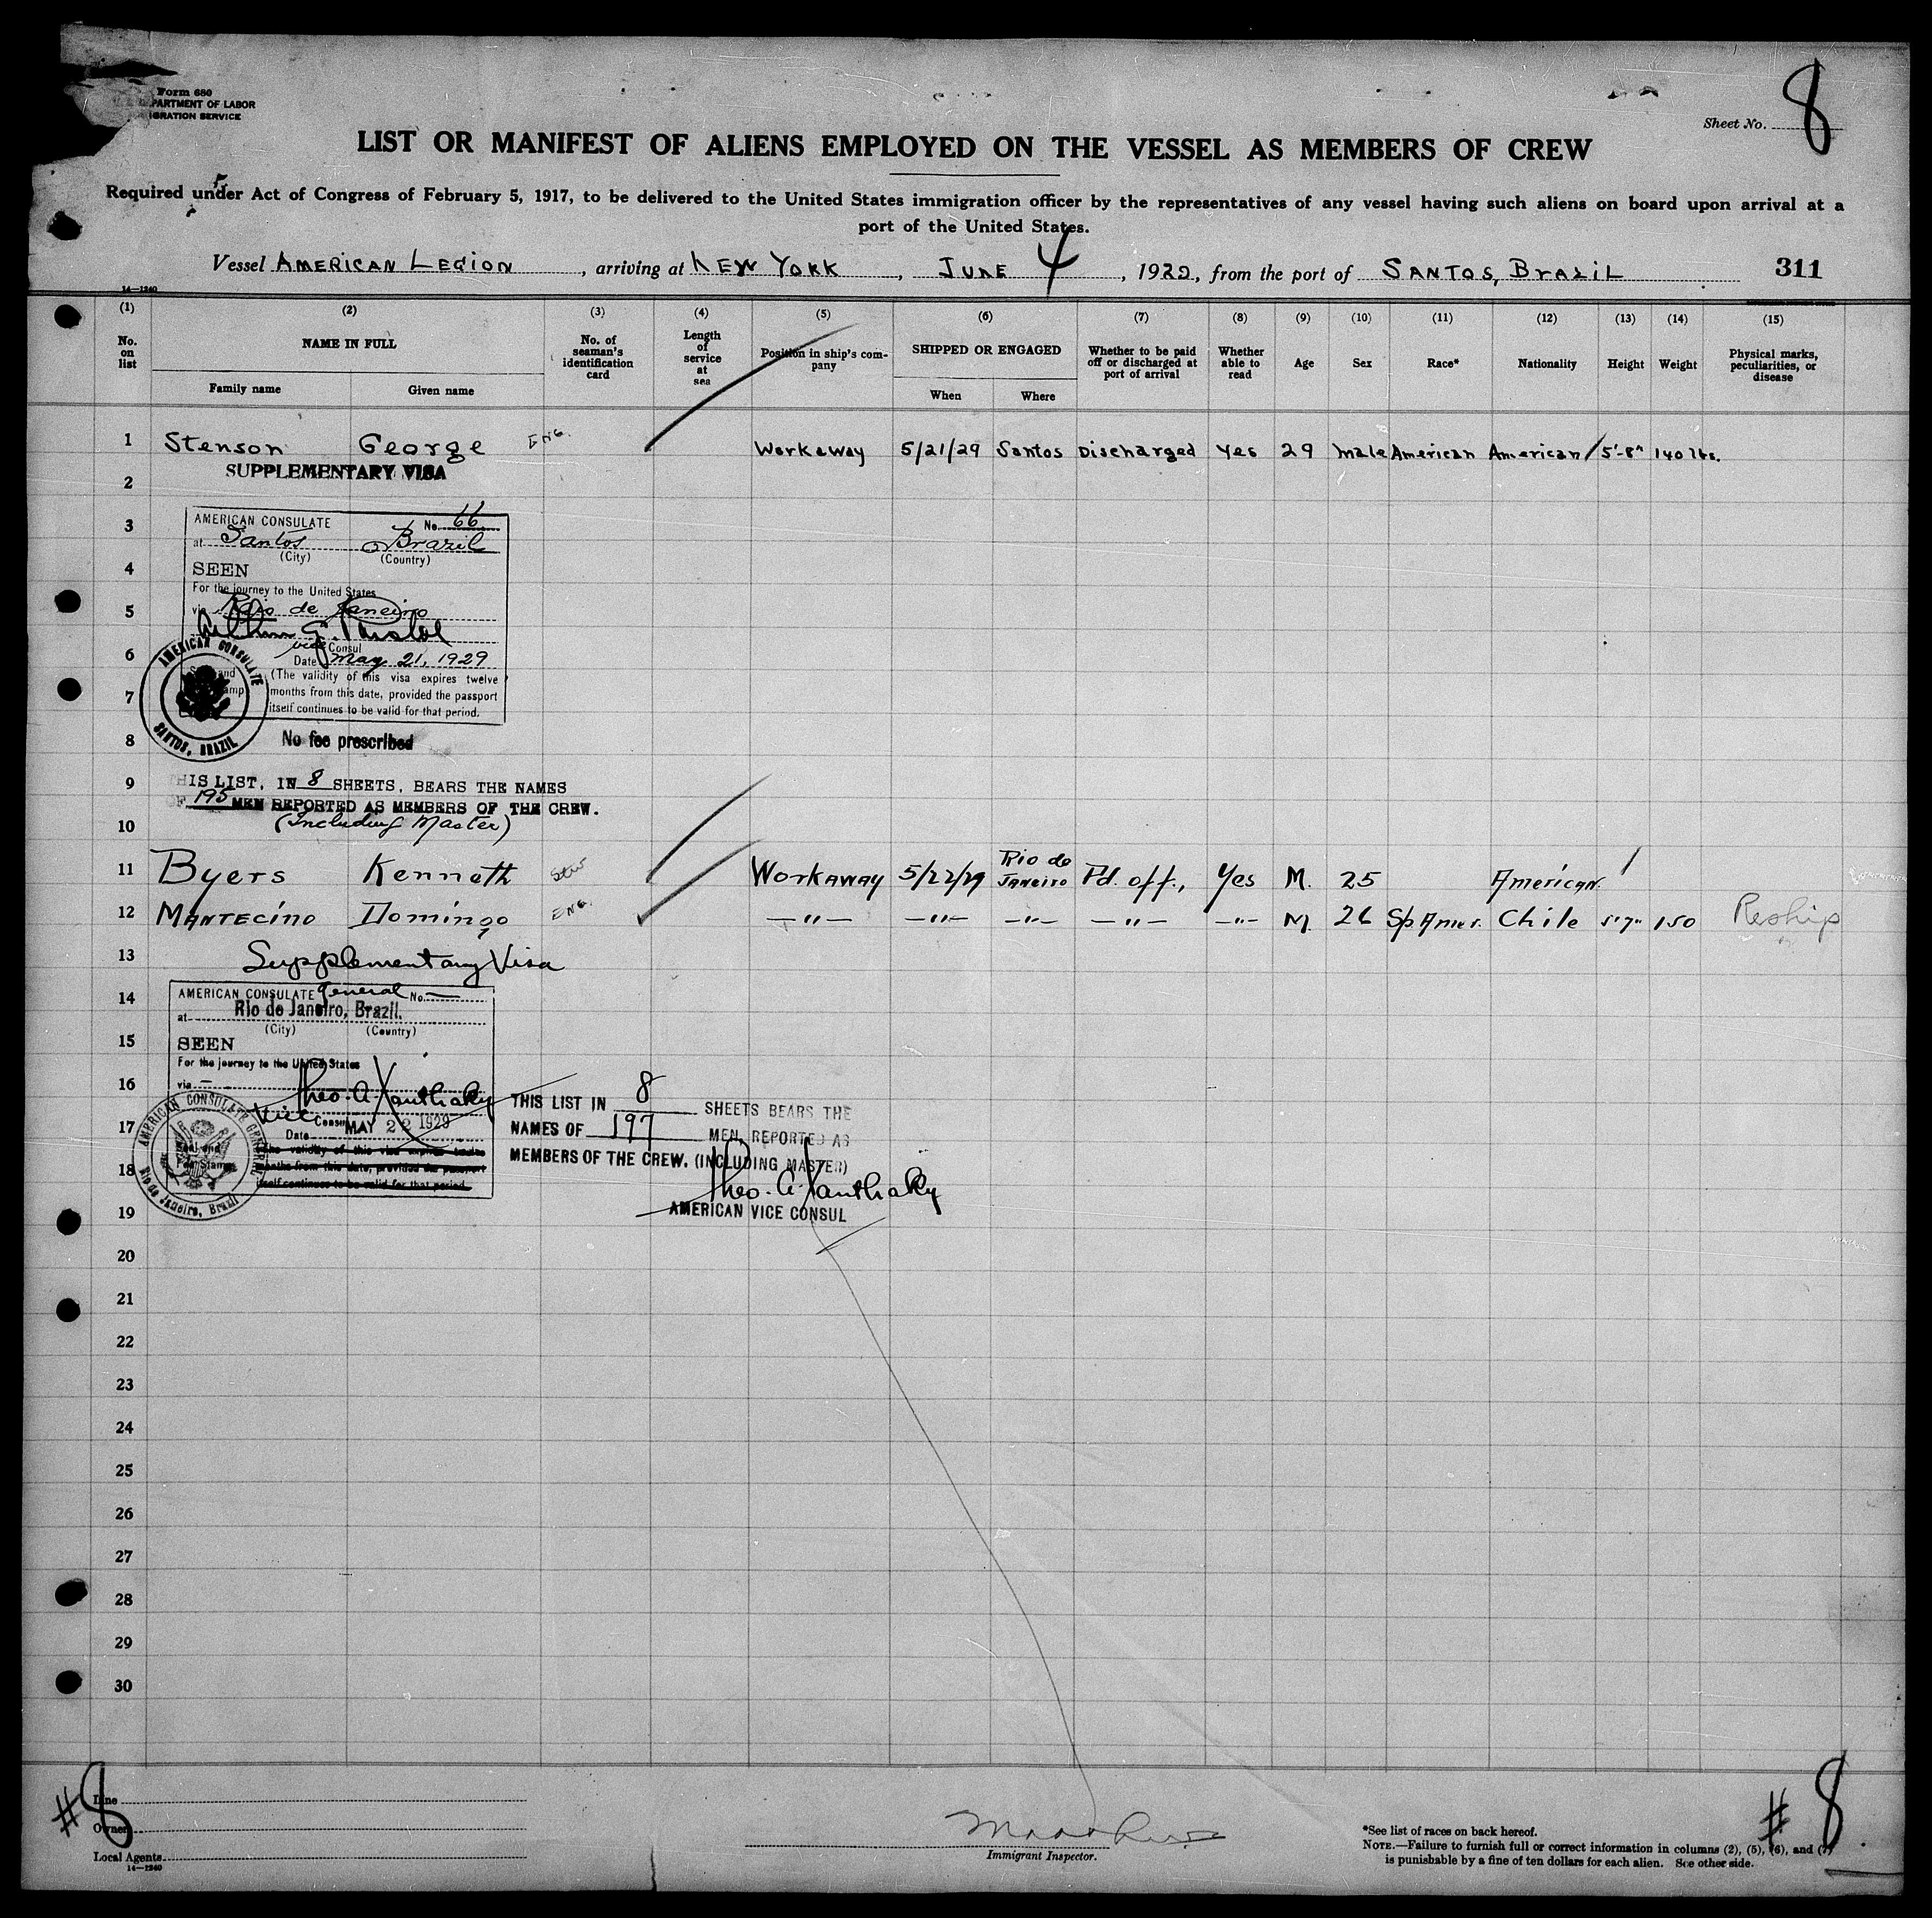 Form 680
PARTMENT OF LABOR
IGRATION SERVICE
Sheet No. 8
LIST OR MANIFEST OF ALIENS EMPLOYED ON THE VESSEL AS MEMBERS OF CREW
Required under Act of Congress of February 5, 1917, to be delivered to the United States immigration officer by the representatives of any vessel having such aliens on board upon arrival at a
port of the United States.
Vessel AMERICAN LEGION, arriving at NEW YORK, JUNE 4, 1929, from the port of SANTOS, BRAZIL 311
14—1240
(1) (2) (3) (4) (5) (6) (7) (8) (9) (10) (11) (12) (13) (14) (15)
No. on list NAME IN FULL No. of seaman's identification card Length of service at sea Position in ship's company SHIPPED OR ENGAGED Whether to be paid off or discharged at port of arrival Whether able to read Age Sex Race* Nationality Height Weight Physical marks, peculiarities, or disease
Family name Given name When Where
1 Stenson George Eng. Workaway 5/21/29 Santos Discharged Yes 29 Male American American 5'-8" 140 lbs.
SUPPLEMENTARY VISA
2
3 AMERICAN CONSULATE No. 66
at Santos Brazil
(City) (Country)
4 SEEN
For the journey to the United States
5 via Rio de Janeiro
Vice Consul
6 Date May 21, 1929
(The validity of this visa expires twelve
7 months from this date, provided the passport
itself continues to be valid for that period.
AMERICAN CONSULATE
SANTOS, BRAZIL
8 No fee prescribed
9 HIS LIST, IN 8 SHEETS, BEARS THE NAMES
OF 195 MEN REPORTED AS MEMBERS OF THE CREW.
10 (Including Master)
11 Byers Kenneth Stew Workaway 5/22/29 Rio de Janeiro Pd. off., Yes M. 25 American
12 Mantecino Domingo Eng. —"— —"— —"— —"— —"— M. 26 Sp. Amer. Chile 5'7" 150 Reship
13 Supplementary Visa
14 AMERICAN CONSULATE General No. —
at Rio de Janeiro, Brazil.
(City) (Country)
15 SEEN
For the journey to the United States
16 via —
Theo. A. Xanthaky
Vice Consul
17 Date MAY 22 1929
The validity of this visa expires twelve
18 months from this date, provided the passport
itself continues to be valid for that period.
AMERICAN CONSULATE GENERAL
Rio de Janeiro, Brazil
THIS LIST IN 8 SHEETS BEARS THE
NAMES OF 197 MEN, REPORTED AS
MEMBERS OF THE CREW. (INCLUDING MASTER)
Theo. A. Xanthaky
19 AMERICAN VICE CONSUL
20
21
22
23
24
25
26
27
28
29
30
#8
Line
Owner
Local Agents
14—1240
Immigrant Inspector.
*See list of races on back hereof.
NOTE.—Failure to furnish full or correct information in columns (2), (5), (6), and (7)
is punishable by a fine of ten dollars for each alien. See other side.
#8